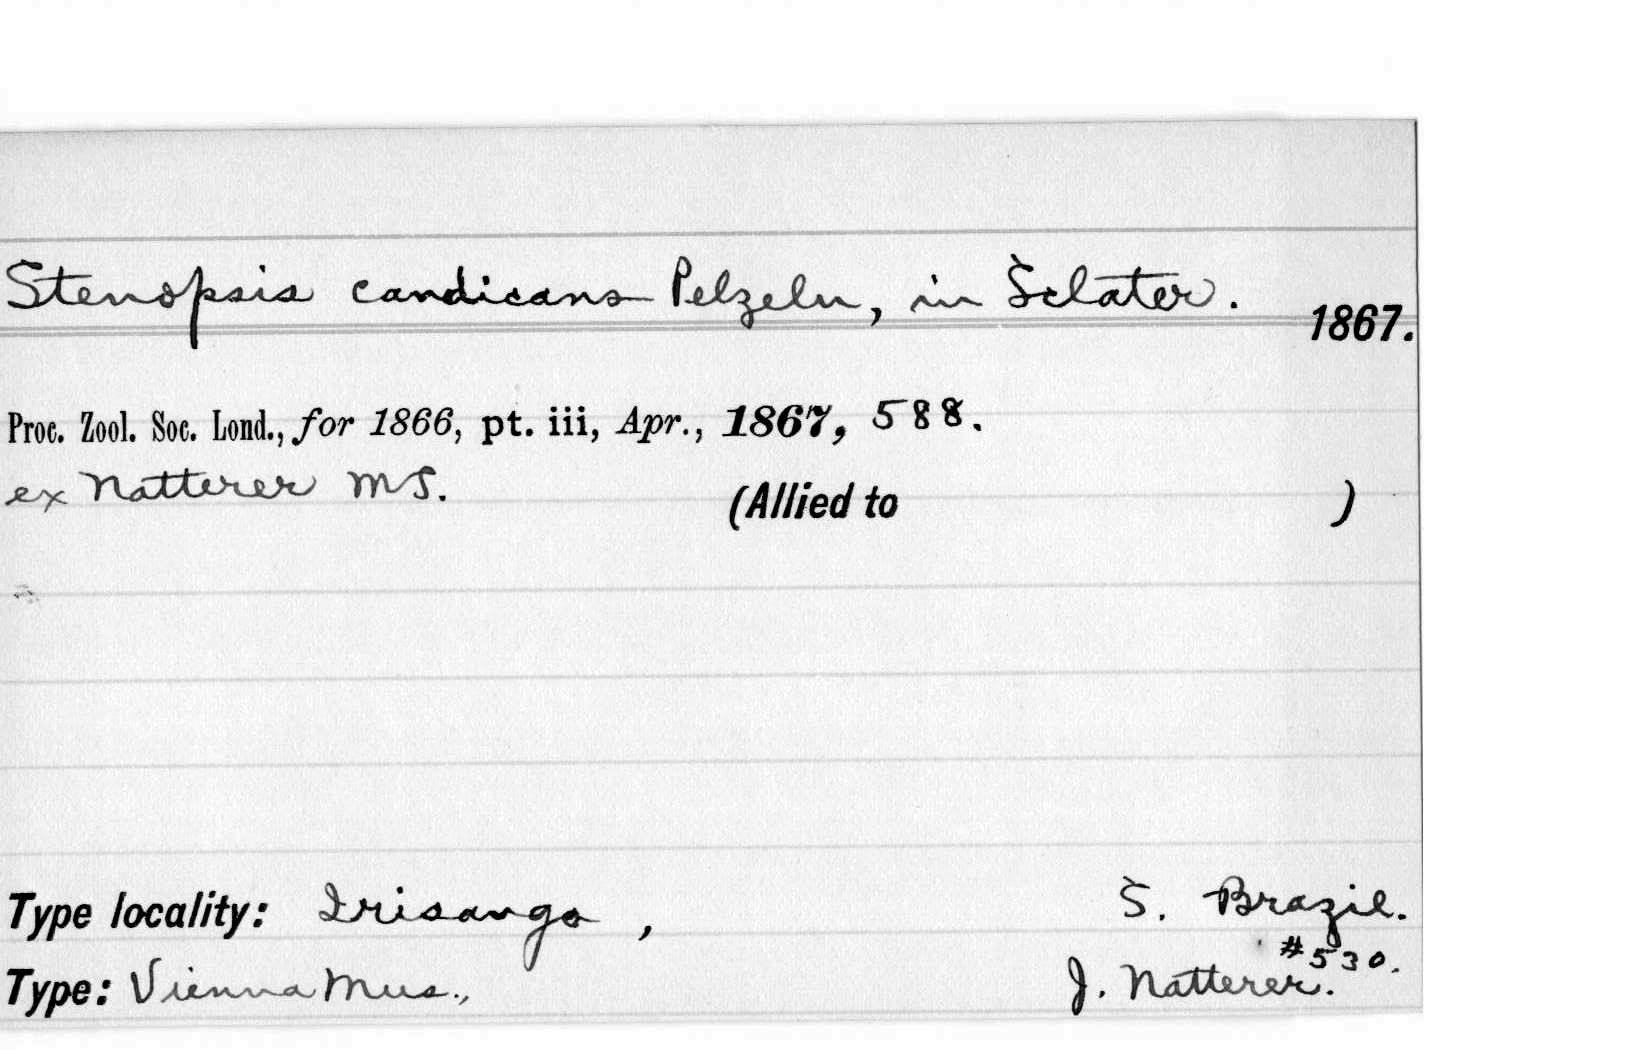 Stenopsis candicans Pelzeln, in Sclater.
1867.
Proc. Zool. Soc. Lond., for 1866, pt. iii, Apr., 1867, 588.
ex Natterer MS. (Allied to )
Type locality: Irisanga, S. Brazil.
#530.
Type: Vienna Mus., J. Natterer.